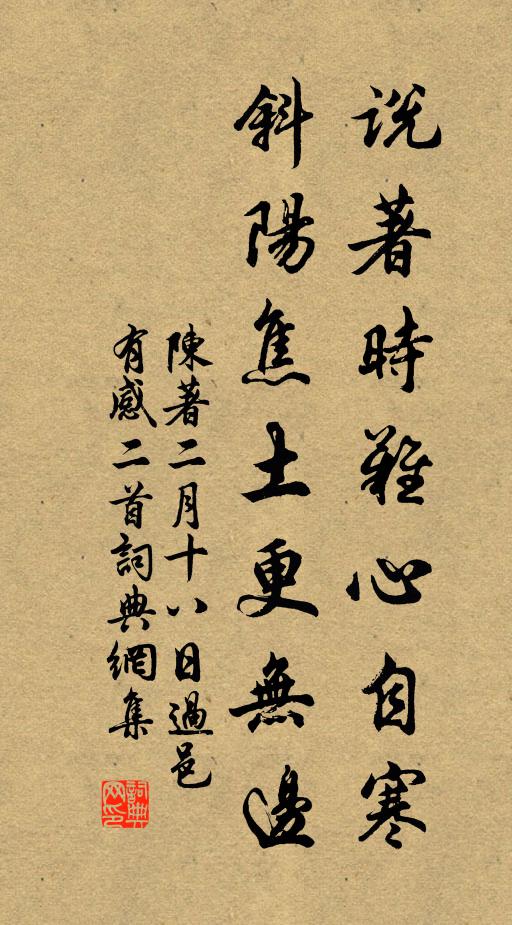 說著時難心自寒
斜陽焦土更無邊
陳著二月十八日過邑
有感二首詞典網集
詞典網印